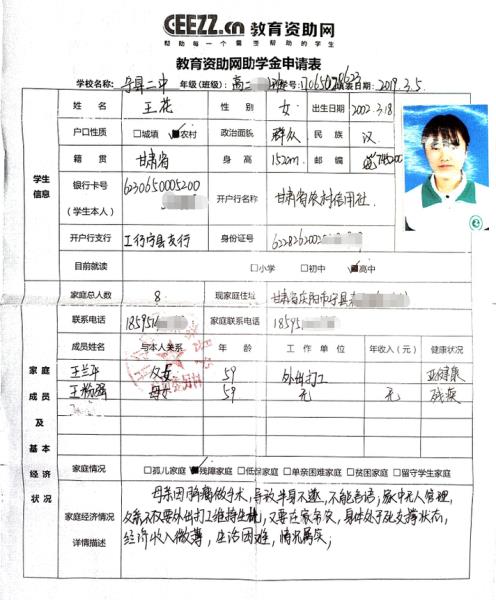 CEEZZ.cn 教育资助网
帮助每一个需要帮助的学生
教育资助网助学金申请表
学校名称: 宁县二中 年级(班级): 高二 学号: 填表日期: 2019.3.5
学生信息
姓名 王花 性别 女 出生日期 2002.3.18
户口性质 □城镇 ■农村 政治面貌 群众 民族 汉
籍贯 甘肃省 身高 152cm 邮编 745200
银行卡号 (学生本人) 6230650005200 开户行名称 甘肃省农村信用社
开户行支行 工行宁县支行 身份证号 6228262002
目前就读 □小学 □初中 ■高中
家庭成员及基本经济状况
家庭总人数 8 现家庭住址 甘肃省庆阳市宁县
联系电话 18595 家庭联系电话 18595
成员姓名 与本人关系 年龄 工作单位 年收入(元) 健康状况
王兰平 父女 59 外出打工 亚健康
母女 59 无 无 残疾
家庭情况 □孤儿家庭 ■残障家庭 □低保家庭 □单亲困难家庭 □贫困家庭 □留守学生家庭
家庭经济情况详情描述
母亲因脑瘤做手术,导致半身不遂,不能言语,家中无人管理,
父亲不仅要外出打工维持生机,又要在家务农,身体处于死支撑状态,
经济收入微薄,生活困难,情况属实;